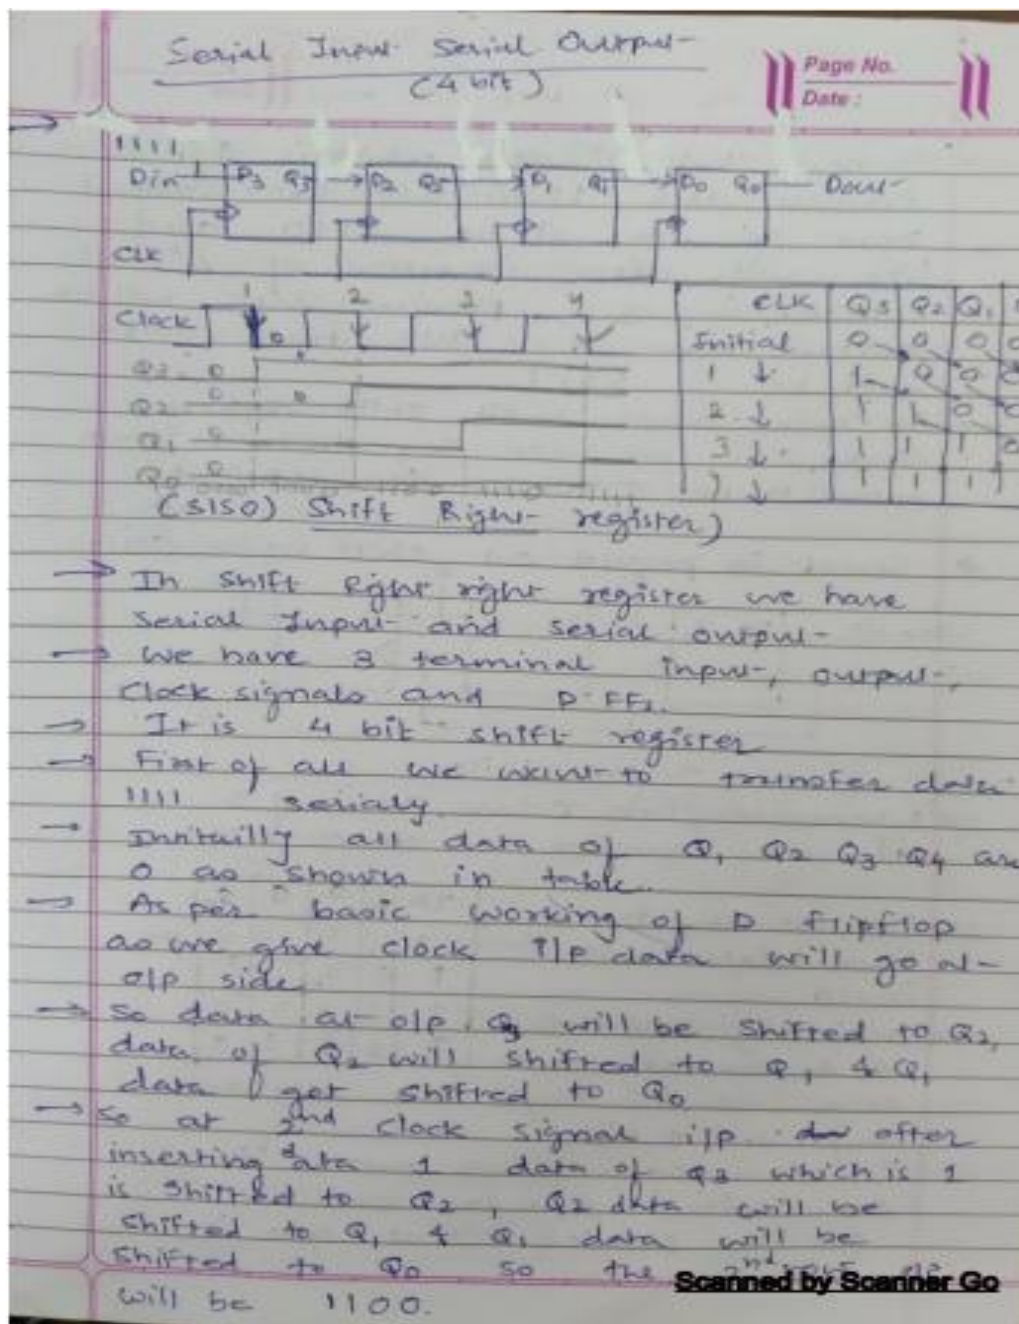 Serial Input Serial Output
(4 bit)
Page No.
Date :
1111
Din 1 D3 Q3 D2 Q2 D1 Q1 D0 Q0 Dout
CLK
1 2 3 4
Clock
Q3 0
Q2 0
Q1 0
Q0 0
CLK Q3 Q2 Q1
Initial 0 0 0 0
1 ↓ 1 0 0 0
2 ↓ 1 1 0 0
3 ↓ 1 1 1 0
↓ 1 1 1 1
(SISO) Shift Right register)
→ In Shift Right right register we have
serial Input and serial output
→ we have 3 terminal input, output,
clock signals and D FFs.
→ It is 4 bit shift register
→ First of all we want to transfer data
1111 serialy
→ Innituilly all data of Q1 Q2 Q3 Q4 are
0 as shown in table.
→ As per basic working of D flipflop
as we give clock i/p data will go at
o/p side.
→ So data at o/p Q3 will be shifted to Q2,
data of Q2 will shifted to Q1 & Q1
data get shifted to Q0
→ So at 2nd clock signal i/p after
inserting data 1 data of Q3 which is 1
is shifted to Q2, Q2 data will be
shifted to Q1 & Q1 data will be
shifted to Q0 so the 2nd o/p
will be 1100.
Scanned by Scanner Go